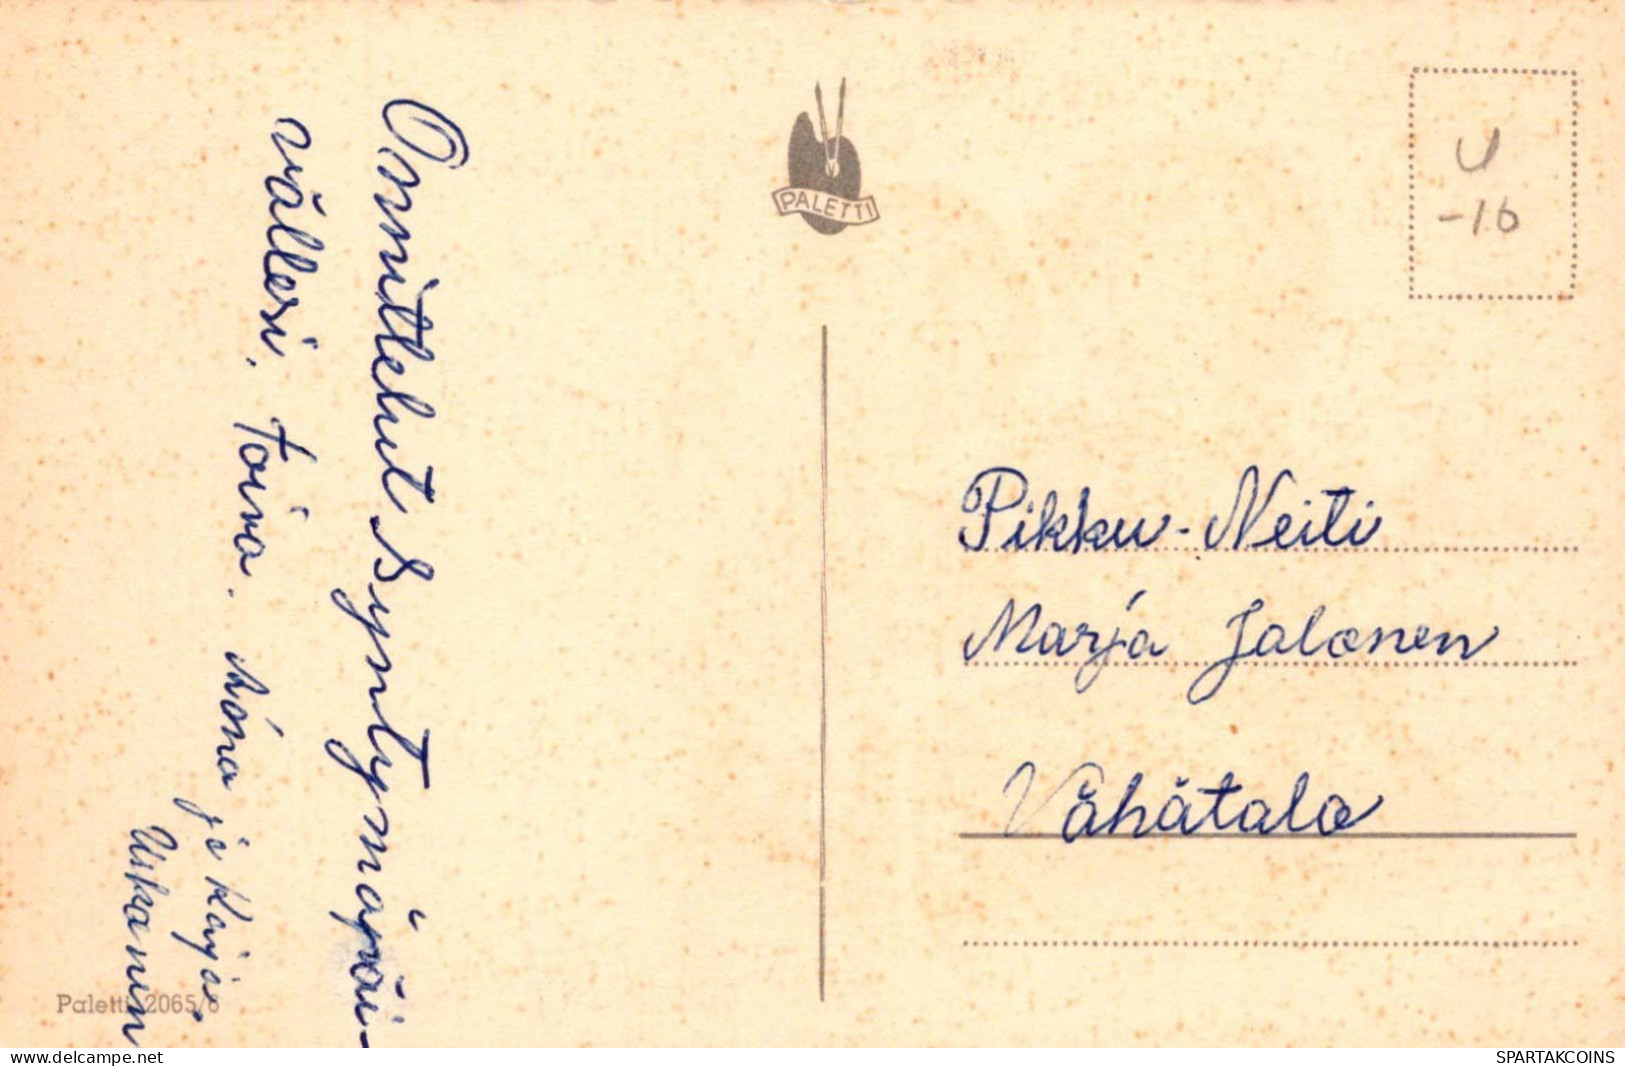 Onnittelut Syntymäpäi-
vällesi. Toivo. Aóna ja Kaija
PALETTI
U
-16
Pikku-Neiti
Marja Jalonen
Vähätalo
Paletti 2065/6
www.delcampe.net
SPARTAKCOINS